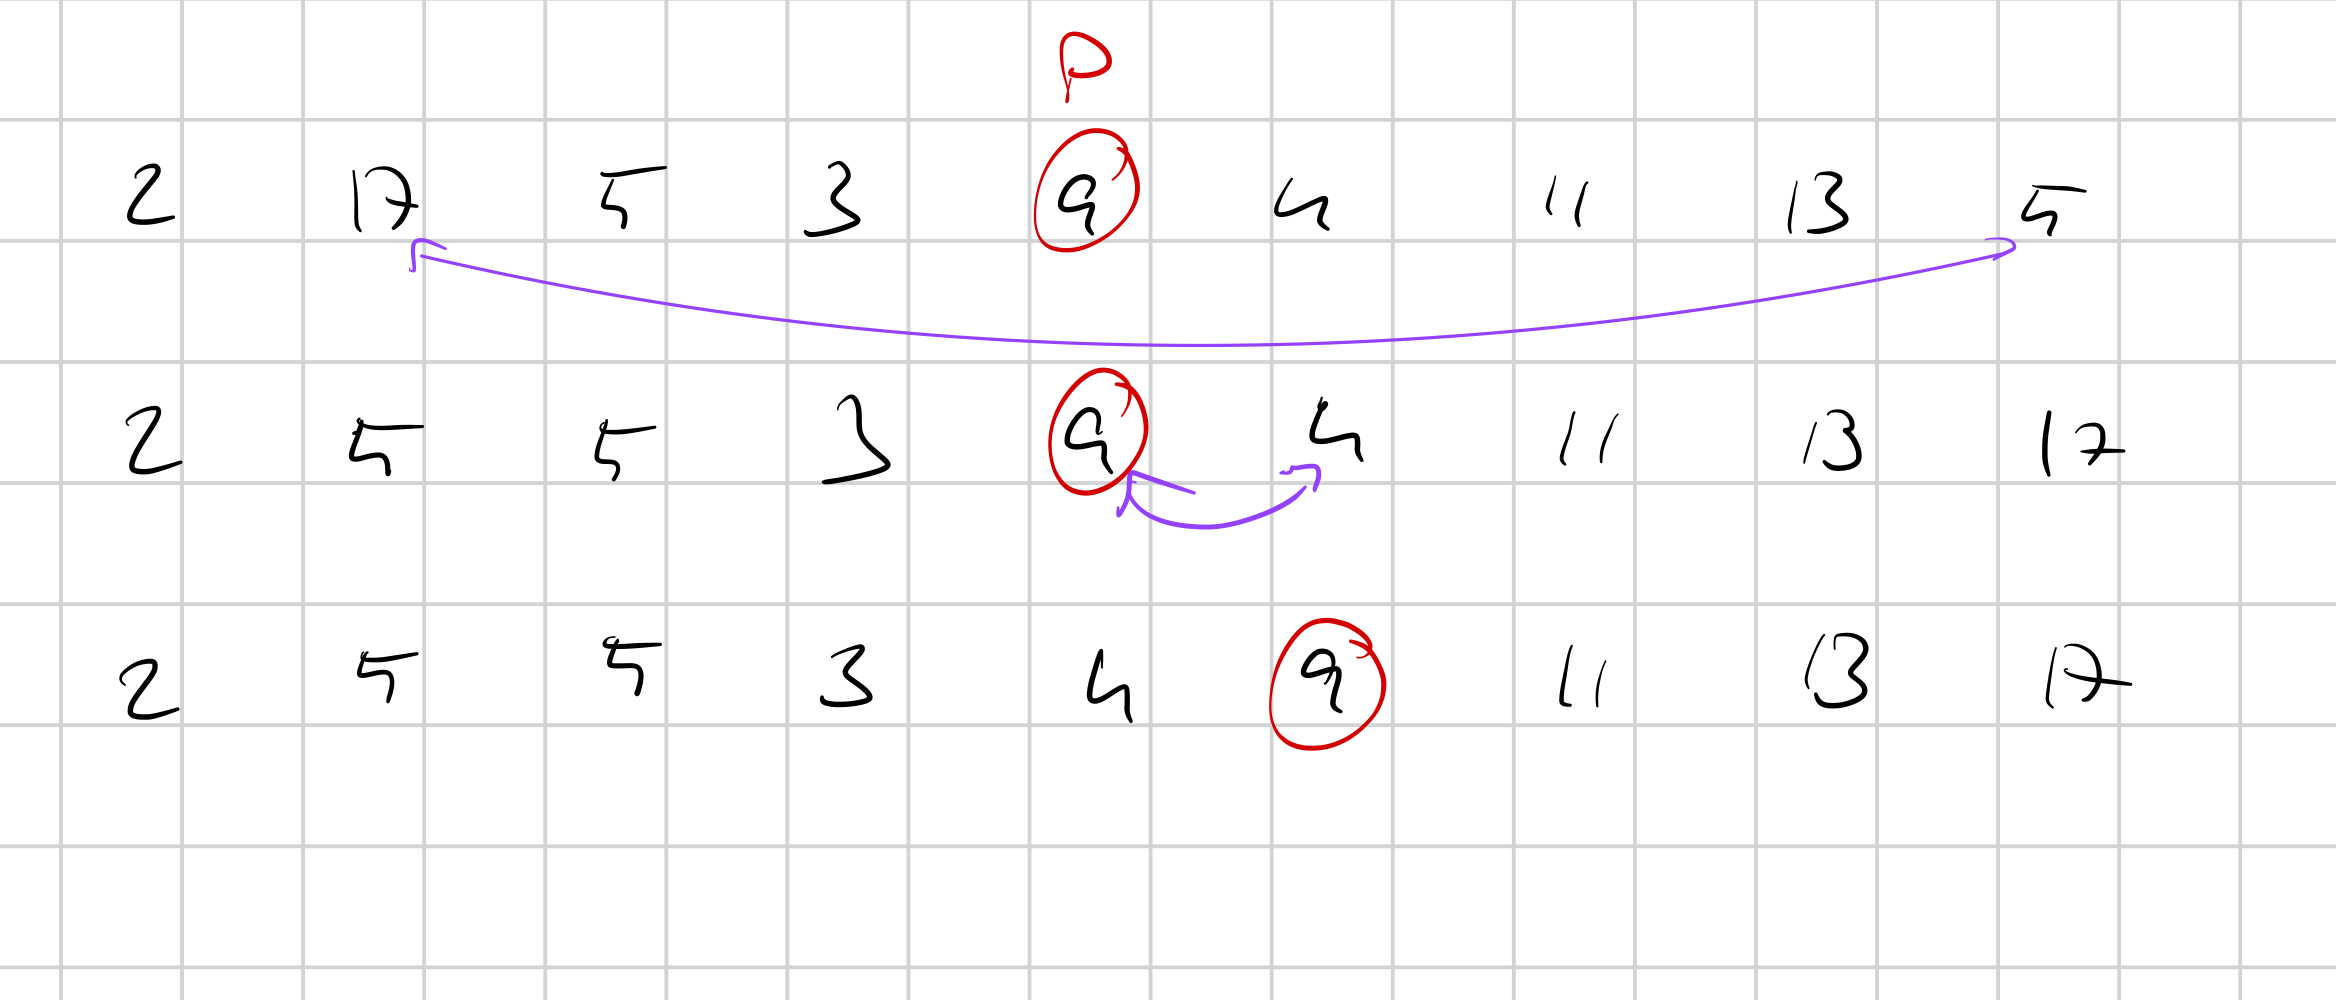 P
2 17 5 3 9 4 11 13 5
2 5 5 3 9 4 11 13 17
2 5 5 3 4 9 11 13 17